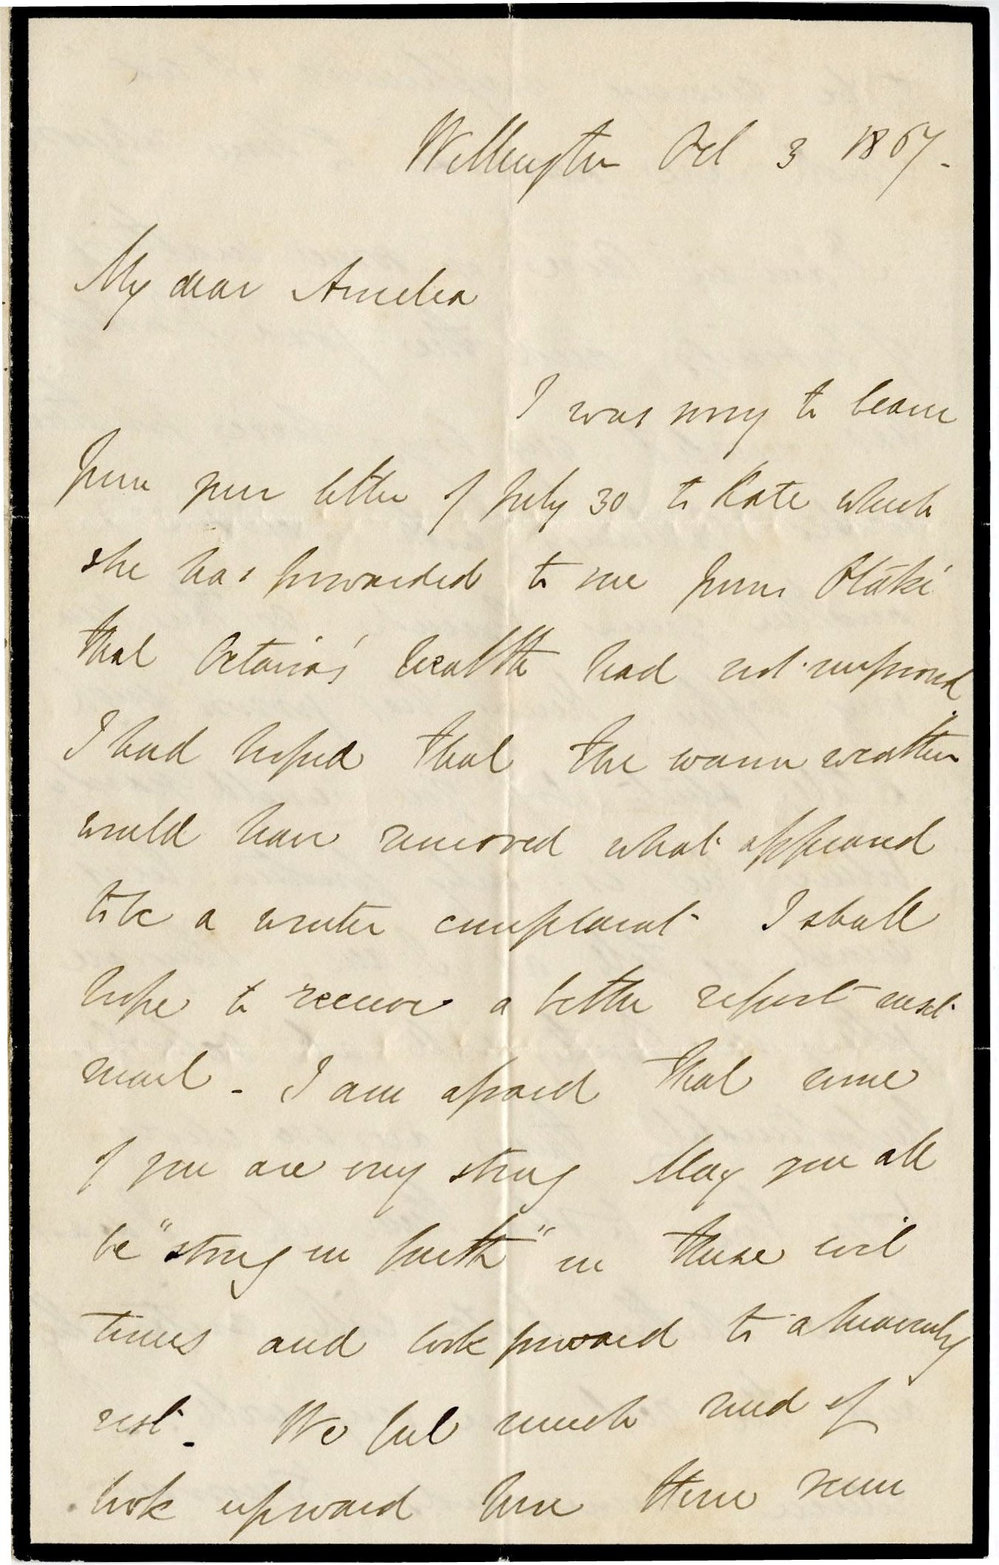 Wellington Oct 3 1867.
My dear Amelia
I was sorry to learn
from your letter of July 30 to Kate which
she has forwarded to me from Otaki
that Octavia's health had not improved
I had hoped that the warm weather
would have removed what appeared
like a winter complaint I shall
hope to receive a better report next
mail - I am afraid that none
of you are very strong May you all
be "strong in faith" in these evil
times and look forward to a heavenly
rest. We feel much need of
look upward here there seem